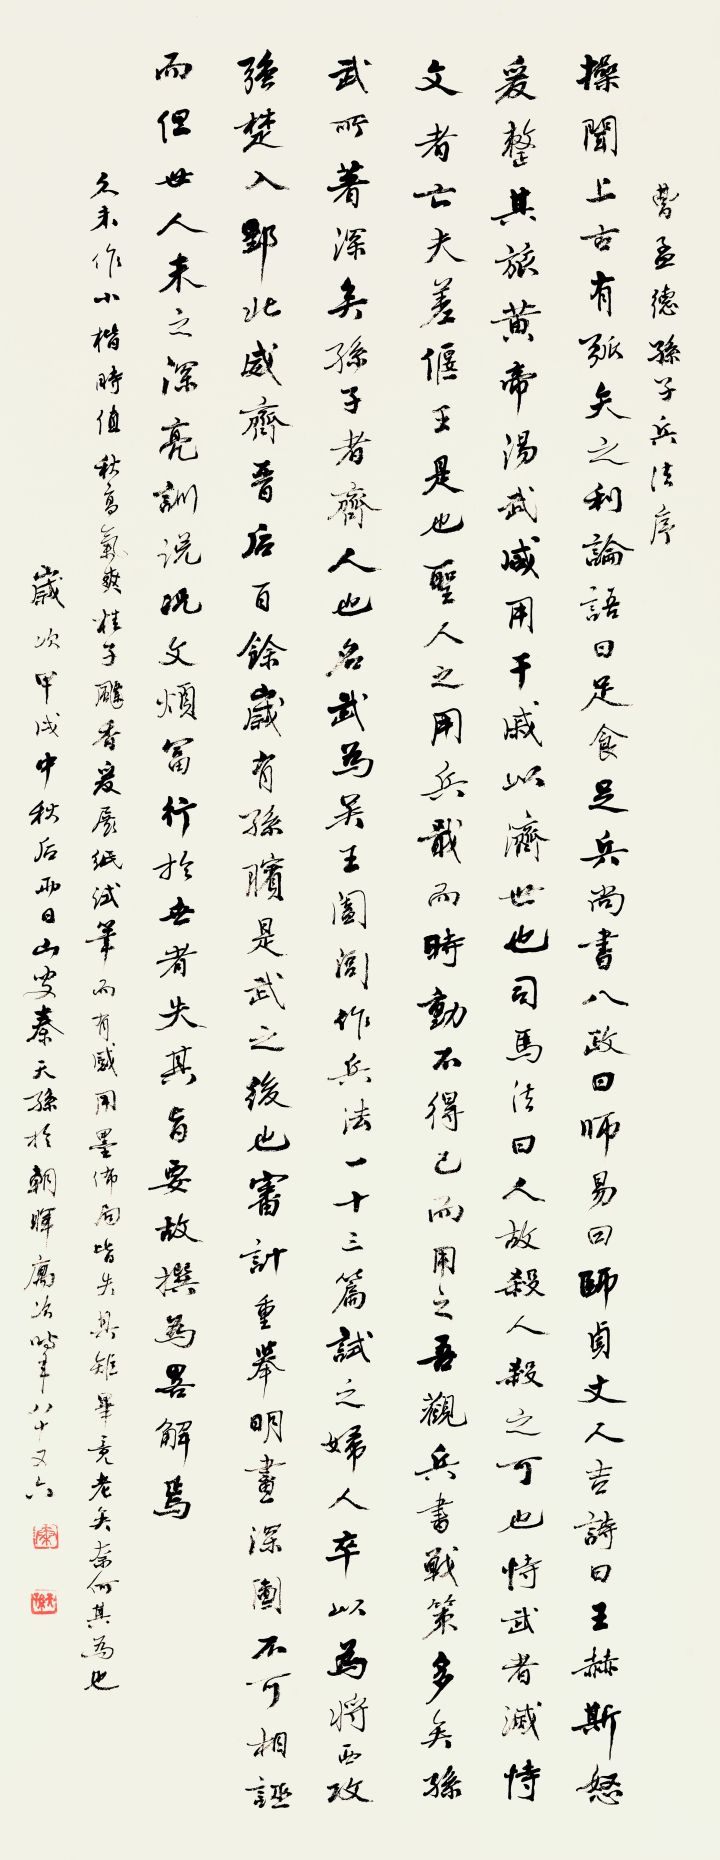 曹孟德孫子兵法序
操聞上古有弧矢之利論語曰足食足兵尚書八政曰師易曰師貞丈人吉詩曰王赫斯怒
爰整其旅黄帝湯武咸用干戚以濟世也司馬法曰人故殺人殺之可也恃武者滅恃
文者亡夫差偃王是也聖人之用兵戢而時動不得已而用之吾觀兵書戰策多矣孫
武所著深矣孫子者齊人也名武為吴王闔閭作兵法一十三篇試之婦人卒以為將西攻
强楚入郢北威齊晉后百餘歲有孫臏是武之後也審計重舉明畫深圖不可相誣
而但世人未之深亮訓说况文煩富行於世者失其旨要故撰為畧解焉
久未作小楷時值秋高氣爽桂子飄香爰展纸试筆而有感用墨佈局皆失其矩畢竟老矣奈何其為也
歲次甲戌中秋后兩日山叟秦天孫於朝暉廬次時年八十又六